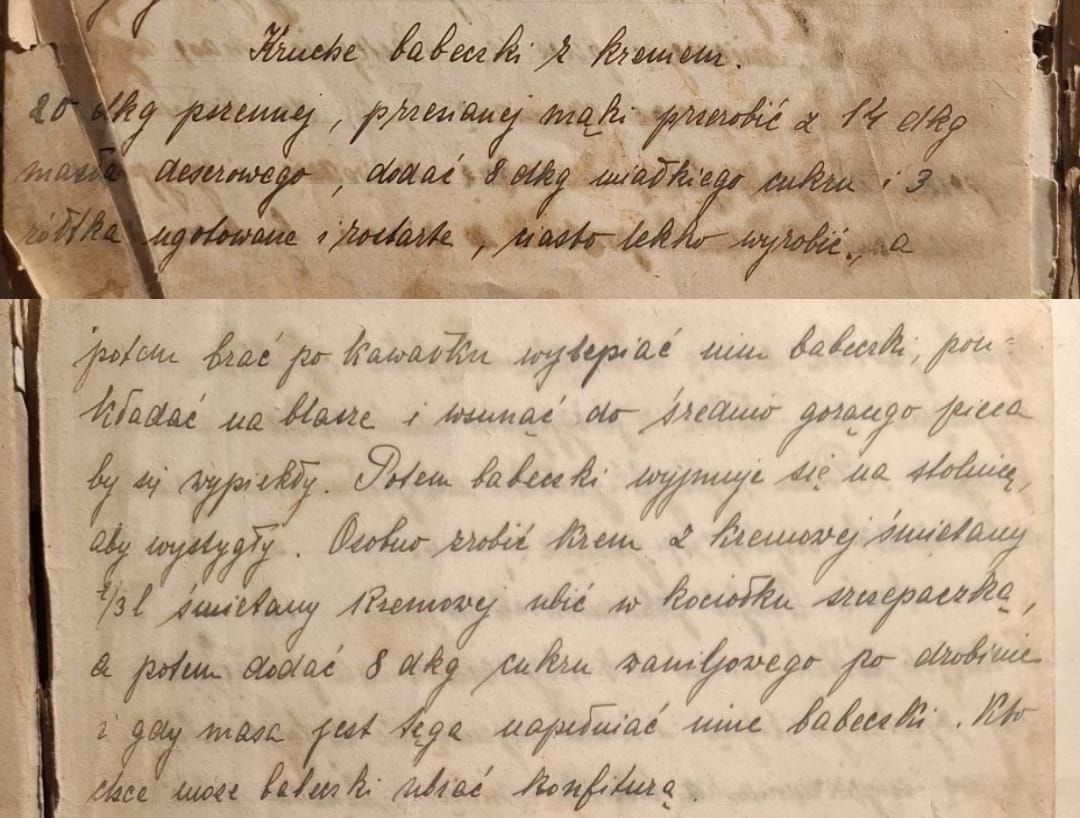 Kruche babeczki z kremem.
20 dkg pszennej, przesianej mąki przerobić z 14 dkg
masła deserowego, dodać 8 dkg miałkiego cukru i 3
żółtka ugotowane i roztarte, ciasto lekko wyrobić, a
potem brać po kawałku wylepiać nim babeczki, pou=
kładać na blasze i wsunąć do średnio gorącego pieca
by się wypiekły. Potem babeczki wyjmuje się na stolnicę,
aby wystygły. Osobno zrobić krem z kremowej śmietany
śmietany kremowej ubić w kociołku szczepaczką,
a potem dodać 8 dkg cukru waniljowego po drobinie
i gdy masa jest tęga napełniać nime babeczki. Kto
chce może babeczki ubrać konfiturą.